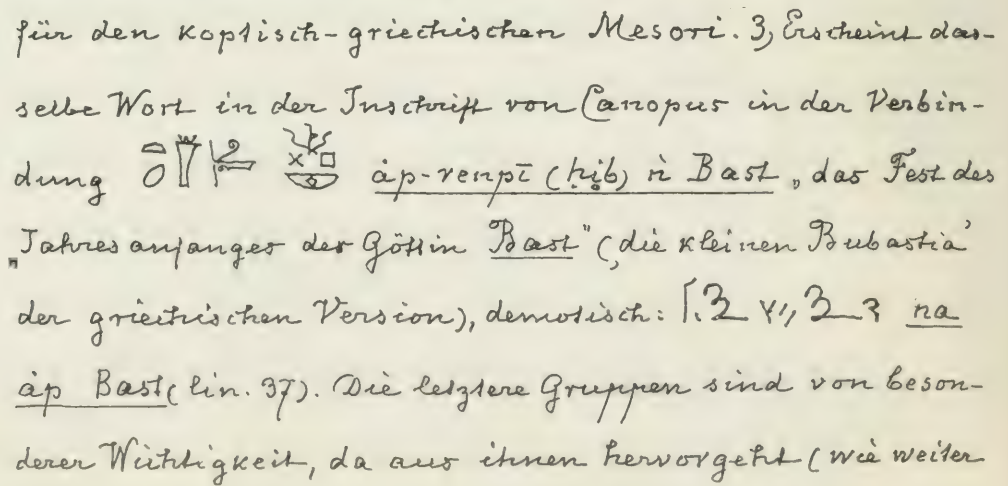 für den koptisch-griechischen Mesori. 3, Erscheint das-
selbe Wort in der Inschrift von Canopus in der Verbin-
dung áp-renpī (ḥib) ǹ Bast „das Fest des
„Jahresanfanges der Göttin Bast" (‚die kleinen Bubastia'
der griechischen Version), demotisch: na
áp Bast (lin. 37). Die letztere Gruppen sind von beson-
derer Wichtigkeit, da aus ihnen hervorgeht (wie weiter